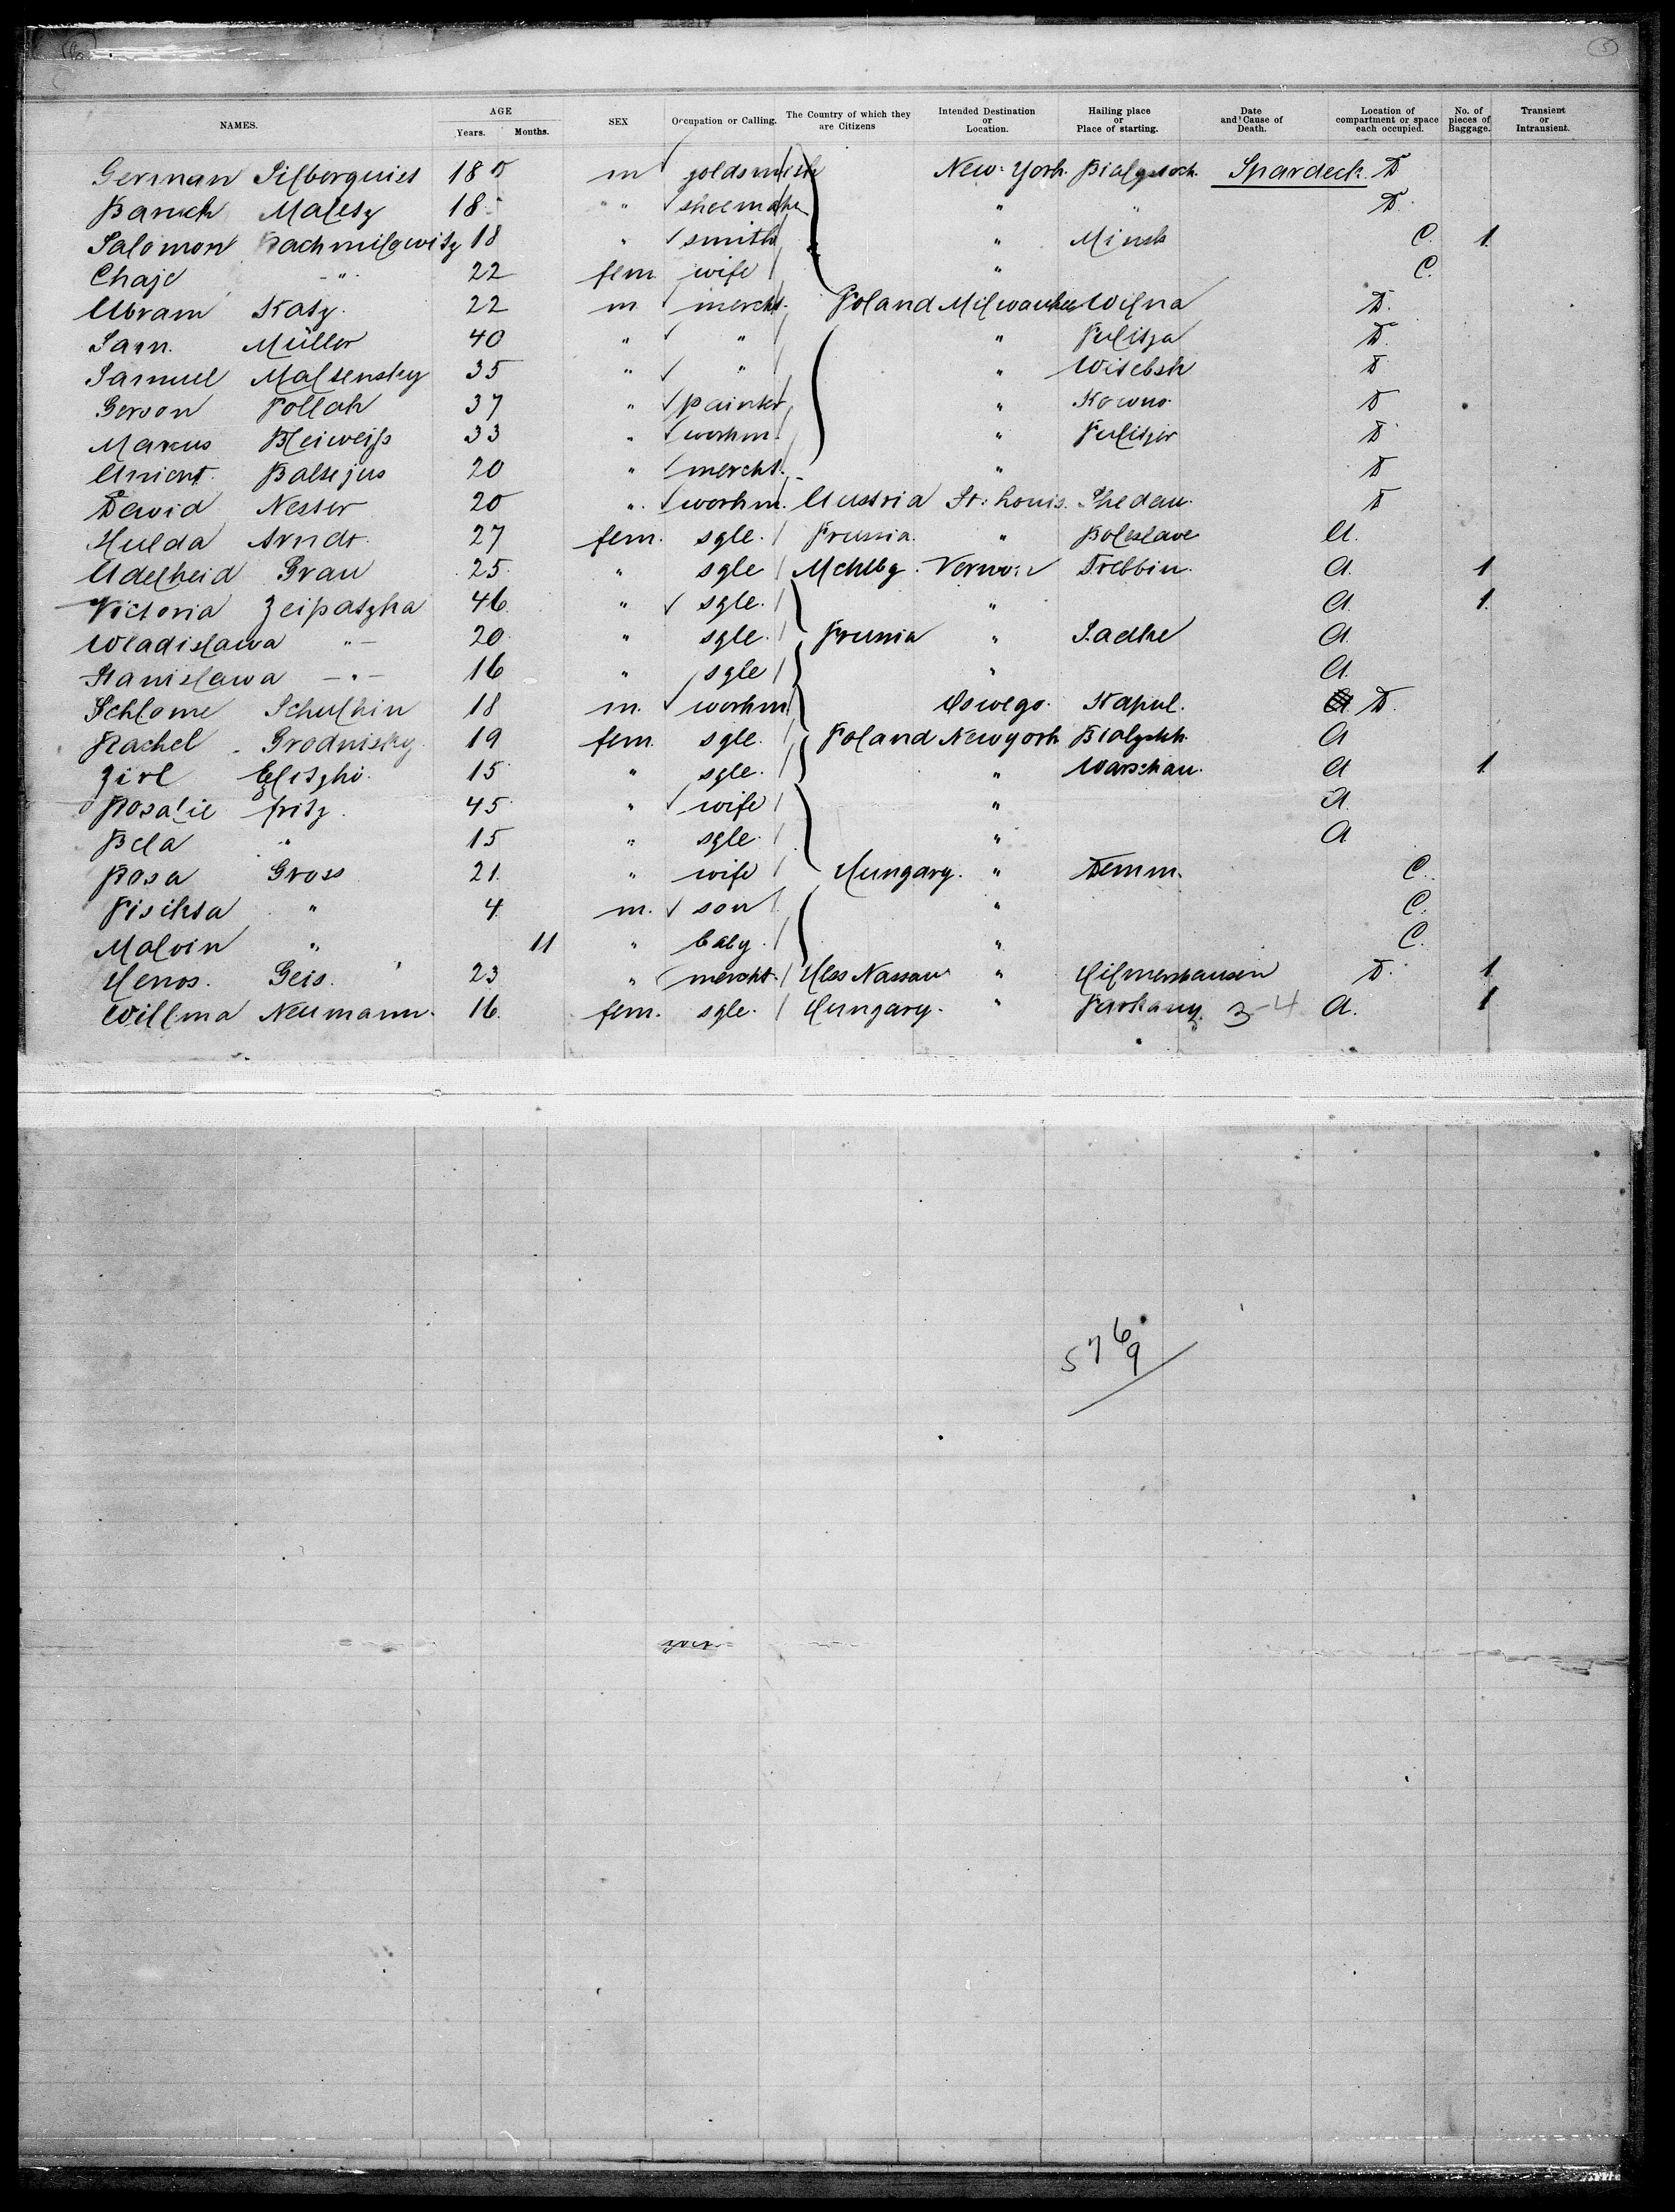 NAMES. AGE Years. Months. SEX Occupation or Calling. The Country of which they are Citizens Intended Destination or Location. Hailing place or Place of starting. Date and Cause of Death. Location of compartment or space each occupied. No. of pieces of Baggage. Transient or Intransient.
German 18 m goldsmith New-York. Spardeck. D
Baruch Maletz 18 " " " D
Salomon Rachmilowitz 18 " smith " Minsk C. 1
Chaje -"- 22 fem. wife " C.
Abram Katz. 22 m. mercht. Poland Milwaukee Wilna D.
Sam. Müller 40 " " " D.
Samuel Malsensky 35 " " " Witebsk D
Gerson Pollak 37 " painter " Kowno. D
Markus Bleiweiß 33 " workm. " D
Baltejus 20 " mercht. " D
David Nesser 20 " workm. Austria St. Louis. D
Hulda Arndt. 27 fem. sgle. Prussia. " Boleslave A.
Adelheid Grau 25 " sgle Mcklbg. Trebbin. A. 1
Victoria Zeipatzka 46. " sgle. " A. 1.
Wladislawa "- 20 " sgle. Prussia " Sadke A.
Stanislawa -"- 16 " sgle " A.
Schlome Schulkin 18 m. workm Oswego. Kapul. D.
Rachel Grodnisky. 19 fem. sgle. Poland Newyork A
Zirl 15 " sgle. " Warschau. A 1.
Rosalie fritz. 45 " wife " A.
Bela " 15 " sgle. " A
Rosa Gross 21. " wife Hungary. " C.
" 4 m. son " C.
Malvin " 11 " baby. " C.
Geis. 23 " mercht. Hess Nassau " Hilmershausen D. 1
Willma Neumann. 16. fem. sgle. Hungary. " Parkany. 3-4 A. 1
5769